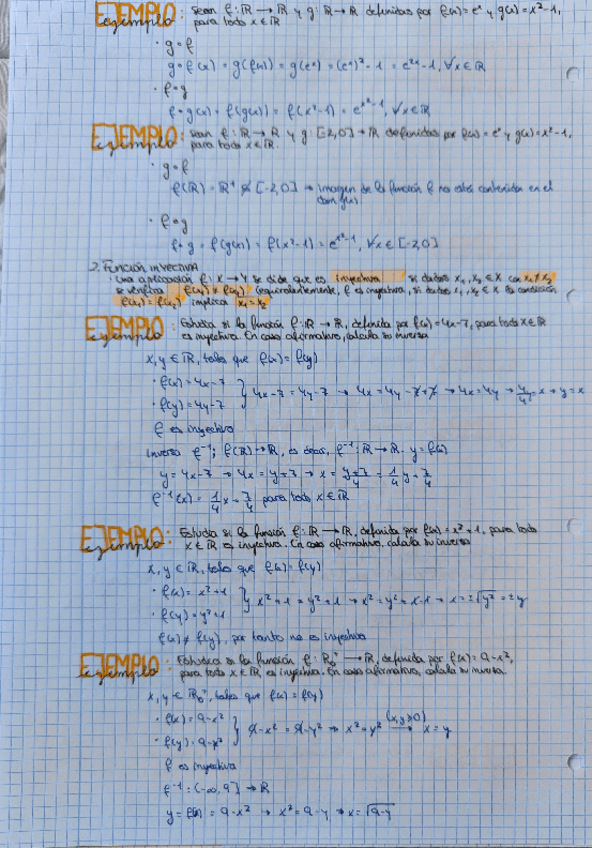 EJEMPLO ejemplo : Sean f: ℝ → ℝ y g: ℝ → ℝ definidas por f(x) = eˣ y g(x) = x² - 1,
para todo x ∈ ℝ
· g∘f
g∘f(x) = g(f(x)) = g(eˣ) = (eˣ)² - 1 = e²ˣ - 1, ∀x ∈ ℝ
· f∘g
f∘g(x) = f(g(x)) = f(x²-1) = e^(x²-1), ∀x ∈ ℝ
EJEMPLO ejemplo : Sean f: ℝ → ℝ y g: [-2,0] → ℝ definidas por f(x) = eˣ y g(x) = x² - 1,
para todo x ∈ ℝ.
· g∘f
f(ℝ) = ℝ⁺ ⊄ [-2,0] → imagen de la función f no está contenida en el
dom g(x)
· f∘g
f∘g = f(g(x)) = f(x²-1) = e^(x²-1), ∀x ∈ [-2,0]
2. Función inyectiva
· Una aplicación f: X → Y se dice que es inyectiva si dados x₁, x₂ ∈ X con x₁ ≠ x₂
se verifica f(x₁) ≠ f(x₂) (equivalentemente, f es inyectiva, si dados x₁, x₂ ∈ X la condición
f(x₁) = f(x₂) implica x₁ = x₂
EJEMPLO ejemplo : Estudia si la función f: ℝ → ℝ, definida por f(x) = 4x-7, para todo x ∈ ℝ
es inyectiva. En caso afirmativo, calcula su inversa
x, y ∈ ℝ, tales que f(x) = f(y)
· f(x) = 4x-7
· f(y) = 4y-7 } 4x-7 = 4y-7 → 4x = 4y-7+7 → 4x = 4y → 4/4 x = y = x
f es inyectiva
Inversa f⁻¹: f(ℝ) → ℝ, es decir, f⁻¹: ℝ → ℝ. y = f(x)
y = 4x-7 → 4x = y+7 → x = (y+7)/4 = 1/4 y + 7/4
f⁻¹(x) = 1/4 x + 7/4 para todo x ∈ ℝ
EJEMPLO ejemplo : Estudia si la función f: ℝ → ℝ, definida por f(x) = x² + 1, para todo
x ∈ ℝ es inyectiva. En caso afirmativo, calcula su inversa
x, y ∈ ℝ, tales que f(x) = f(y)
· f(x) = x²+1
· f(y) = y²+1 } x²+1 = y²+1 → x² = y²+1-1 → x = ±√y² = ±y
f(x) ≠ f(y), por tanto no es inyectiva
EJEMPLO ejemplo : Estudia si la función f: ℝ₀⁺ → ℝ, definida por f(x) = 9-x²,
para todo x ∈ ℝ, es inyectiva. En caso afirmativo, calcula su inversa.
x, y ∈ ℝ₀⁺, tales que f(x) = f(y)
· f(x) = 9-x²
· f(y) = 9-y² } 9-x² = 9-y² → x² = y² (x,y≥0) → x = y
f es inyectiva
f⁻¹ = (-∞, 9] → ℝ
y = f(x) = 9-x² → x² = 9-y → x = √9-y